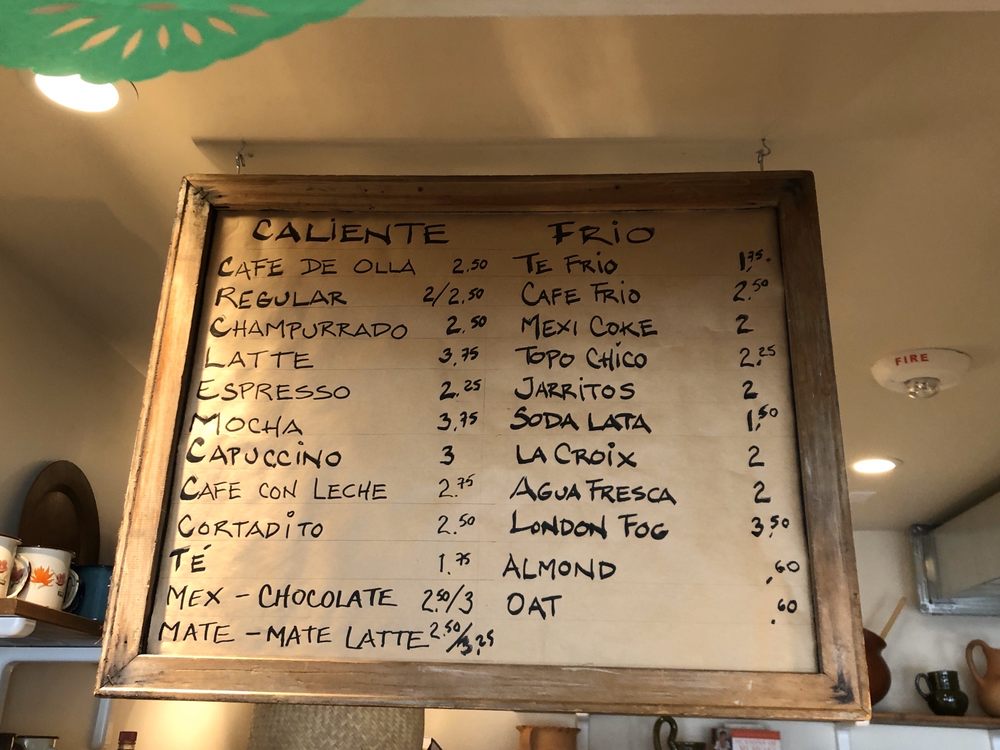 CALIENTE
CAFE DE OLLA 2.50
REGULAR 2/2.50
CHAMPURRADO 2.50
LATTE 3.75
ESPRESSO 2.25
MOCHA 3.75
CAPUCCINO 3
CAFE CON LECHE 2.75
CORTADITO 2.50
TÉ 1.75
MEX - CHOCOLATE 2.50/3
MATE - MATE LATTE 2.50/3.25
FRIO
TE FRIO 1.75
CAFE FRIO 2.50
MEXI COKE 2
TOPO CHICO 2.25
JARRITOS 2
SODA LATA 1.50
LA CROIX 2
AGUA FRESCA 2
LONDON FOG 3.50
ALMOND .60
OAT .60
FIRE